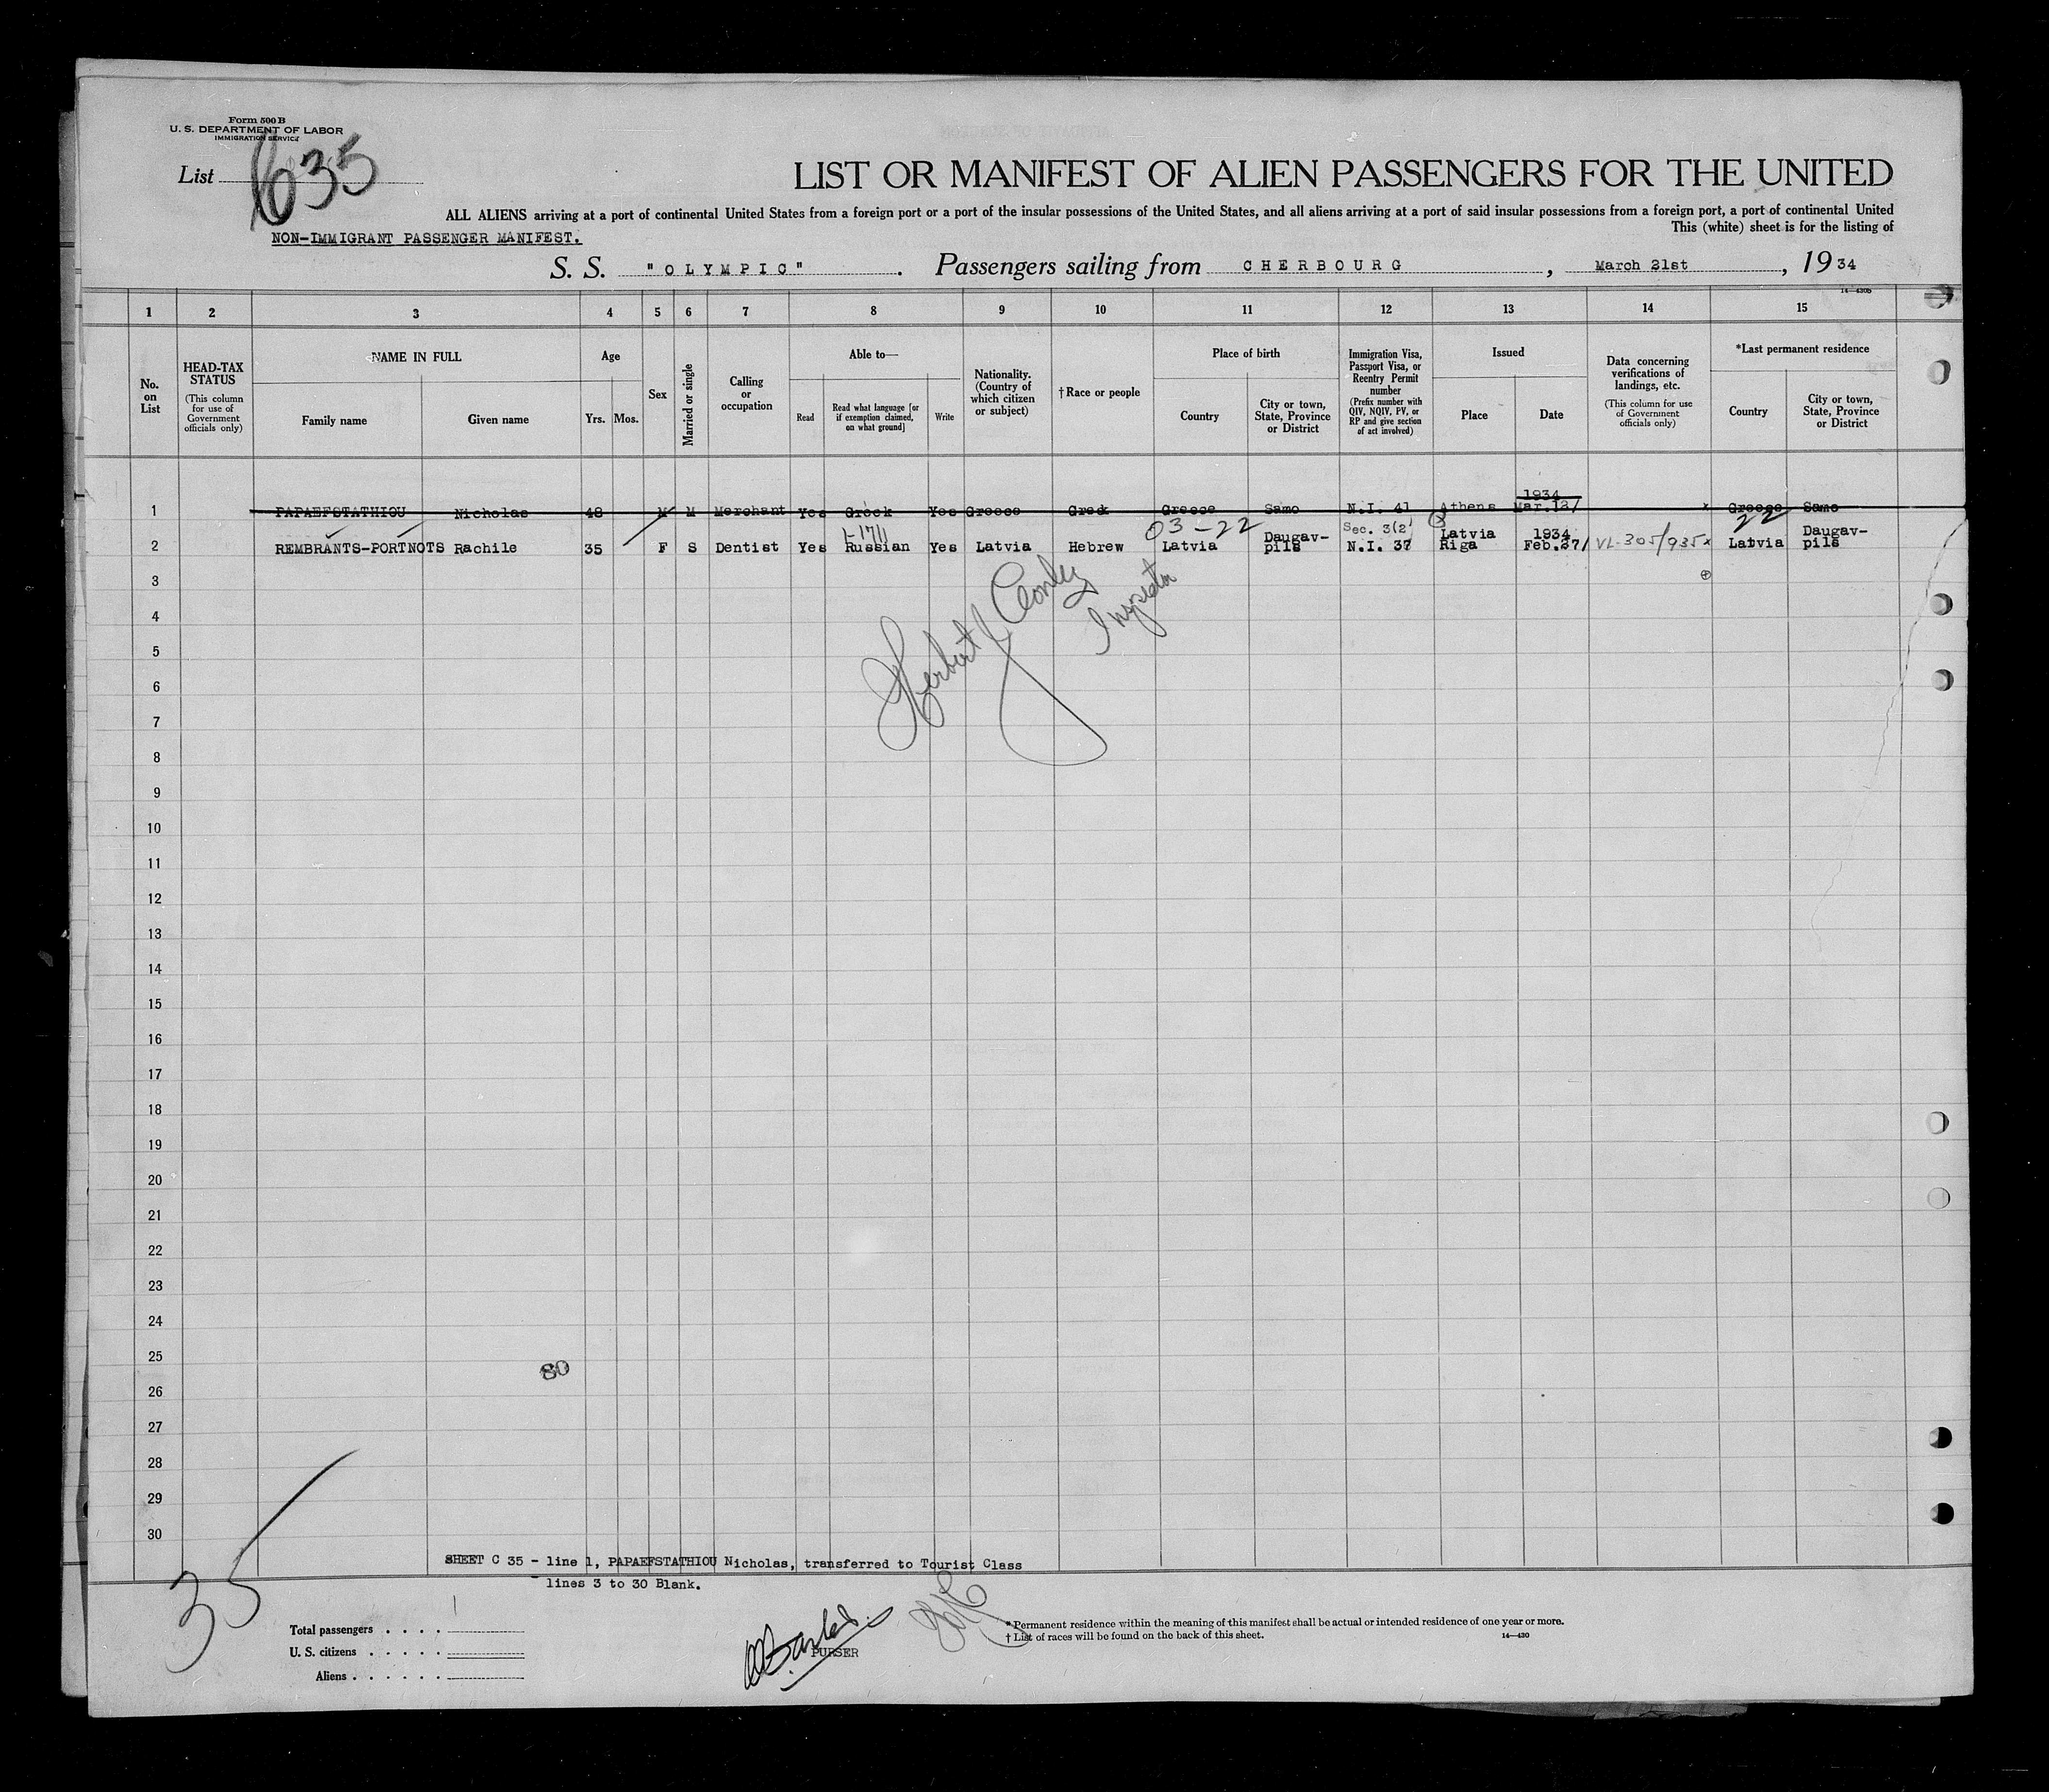 Form 500 B
U. S. DEPARTMENT OF LABOR
IMMIGRATION SERVICE
List 635
LIST OR MANIFEST OF ALIEN PASSENGERS FOR THE UNITED
ALL ALIENS arriving at a port of continental United States from a foreign port or a port of the insular possessions of the United States, and all aliens arriving at a port of said insular possessions from a foreign port, a port of continental United
This (white) sheet is for the listing of
NON-IMMIGRANT PASSENGER MANIFEST.
S. S. "OLYMPIC" . Passengers sailing from CHERBOURG , March 21st , 1934
14—430b
1 2 3 4 5 6 7 8 9 10 11 12 13 14 15
No. on List
HEAD-TAX STATUS (This column for use of Government officials only)
NAME IN FULL
Family name Given name
Age
Yrs. Mos.
Sex
Married or single
Calling or occupation
Able to—
Read Read what language [or if exemption claimed, on what ground] Write
Nationality. (Country of which citizen or subject)
† Race or people
Place of birth
Country City or town, State, Province or District
Immigration Visa, Passport Visa, or Reentry Permit number (Prefix number with QIV, NQIV, PV, or RP and give section of act involved)
Issued
Place Date
Data concerning verifications of landings, etc. (This column for use of Government officials only)
*Last permanent residence
Country City or town, State, Province or District
1934
1 PAPAEFSTATHIOU Nicholas 48 M M Merchant Yes Greek Yes Greece Greek Greece Samo N.I. 41 Athens Mar.12/ x Greece Samo
1-1711 03-22 Sec. 3(2) 22
Daugav- Latvia 1934 Daugav-
2 REMBRANTS-PORTNOTS Rachile 35 F S Dentist Yes Russian Yes Latvia Hebrew Latvia pils N.I. 37 Riga Feb.27/ VL-305/935 x Latvia pils
3
4
5
6
7
8
9
10
11
12
13
14
15
16
17
18
19
20
21
22
23
24
25
26
27
28
29
30
Herbert J Conley
Inspector
80
35
SHEET C 35 - line 1, PAPAEFSTATHIOU Nicholas, transferred to Tourist Class
- lines 3 to 30 Blank.
Total passengers . . . . 1
U. S. citizens . . . . .
Aliens . . . . . .
PURSER
* Permanent residence within the meaning of this manifest shall be actual or intended residence of one year or more.
† List of races will be found on the back of this sheet.
14—430